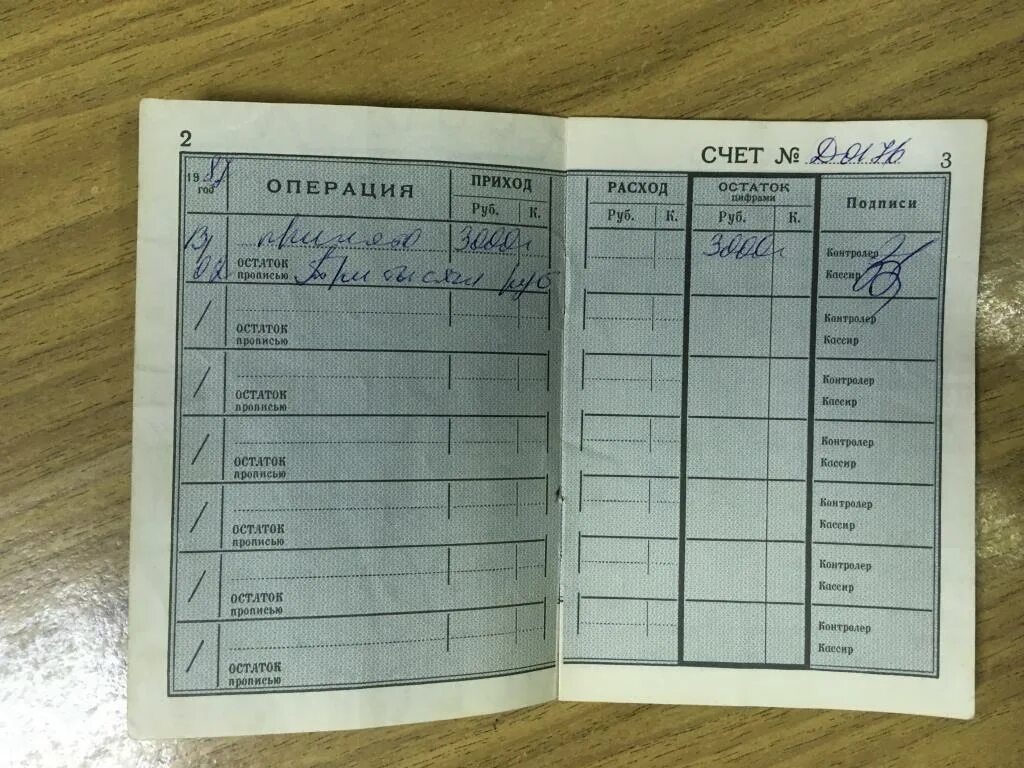 2
СЧЕТ № Д0176 3
19 год ОПЕРАЦИЯ ПРИХОД РАСХОД ОСТАТОК цифрами Подписи
Руб. К. Руб. К. Руб. К.
принято 3000 3000 Контролер
02 ОСТАТОК прописью Три тысячи руб Кассир
/ Контролер
ОСТАТОК прописью Кассир
/ Контролер
ОСТАТОК прописью Кассир
/ Контролер
ОСТАТОК прописью Кассир
/ Контролер
ОСТАТОК прописью Кассир
/ Контролер
ОСТАТОК прописью Кассир
/ Контролер
ОСТАТОК прописью Кассир